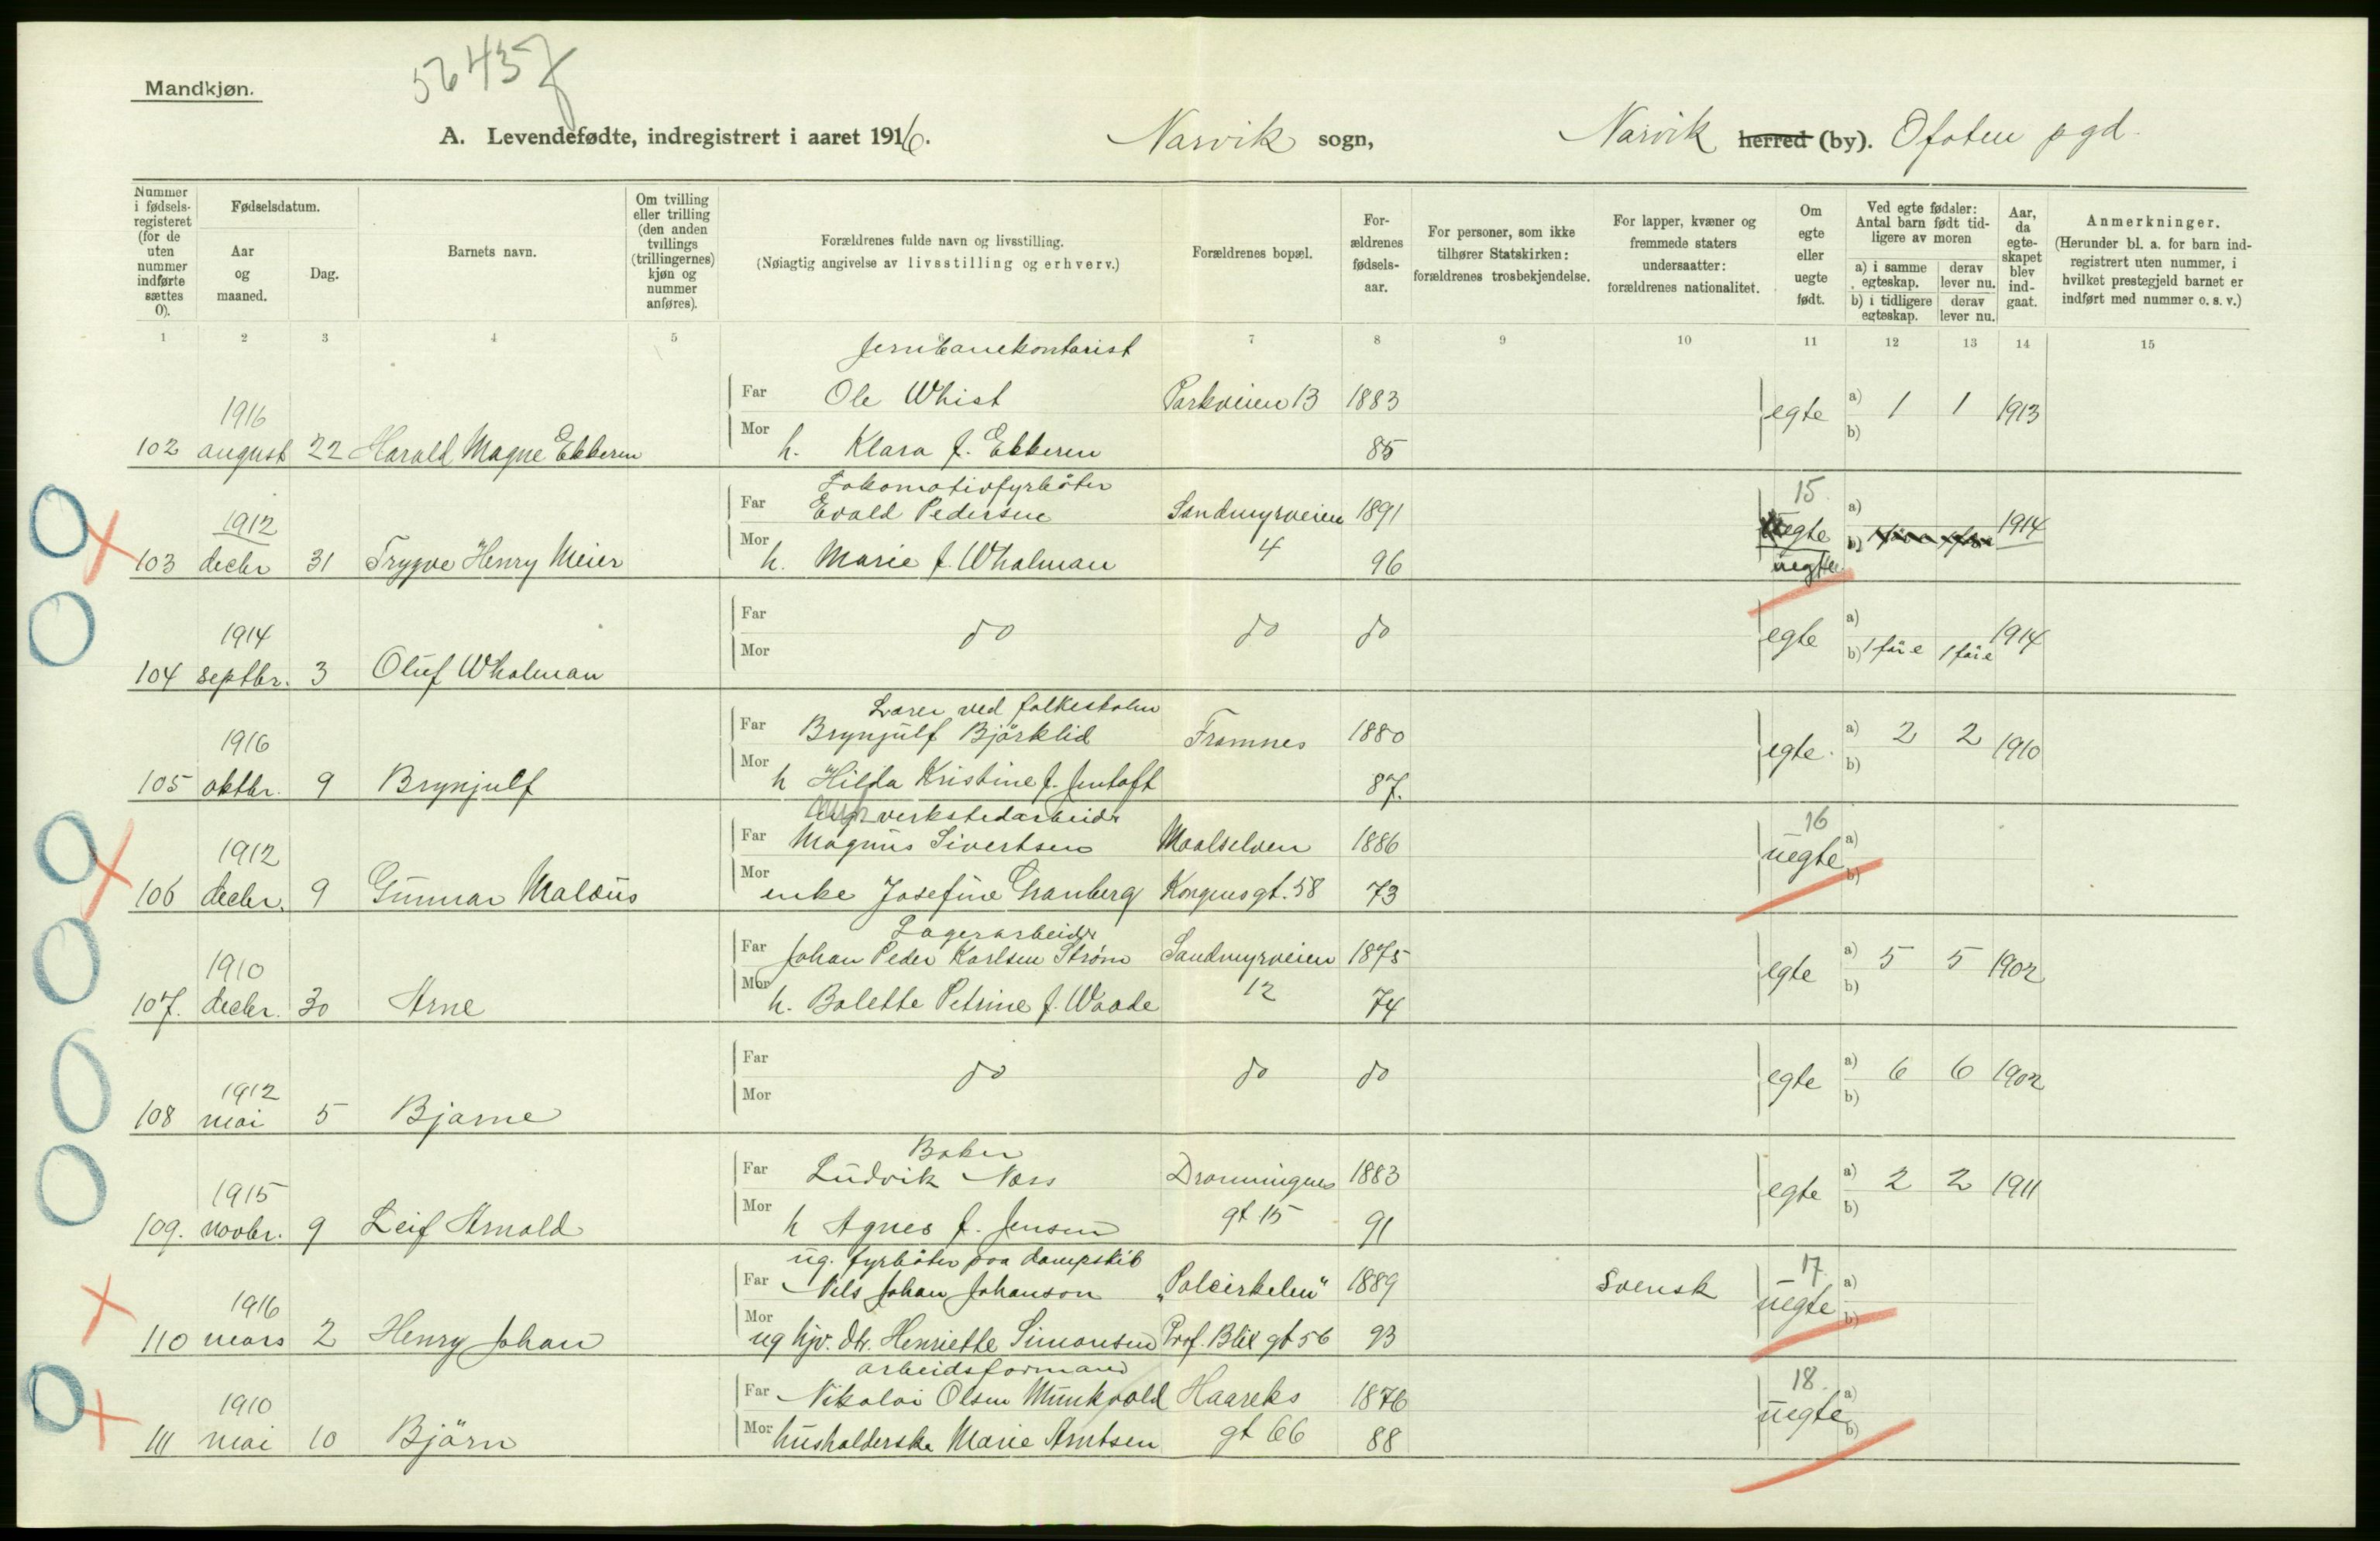 56437
Mandkjøn.
A. Levendefødte, indregistrert i aaret 1916. Narvik sogn, Narvik herred (by). Ofoten pgd.
Nummer i fødsels-registeret (for de uten nummer indførte sættes 0).
Fødselsdatum.
Aar og maaned.
Dag.
Barnets navn.
Om tvilling eller trilling (den anden tvillings (trillingernes) kjøn og nummer anføres).
Forældrenes fulde navn og livsstilling.
(Nøiagtig angivelse av livsstilling og erhverv.)
Forældrenes bopæl.
For-ældrenes fødsels-aar.
For personer, som ikke tilhører Statskirken: forældrenes trosbekjendelse.
For lapper, kvæner og fremmede staters undersaatter: forældrenes nationalitet.
Om egte eller uegte født.
Ved egte fødsler: Antal barn født tid-ligere av moren
a) i samme egteskap.
derav lever nu.
b) i tidligere egteskap.
derav lever nu.
Aar, da egte-skapet blev ind-gaat.
Anmerkninger.
(Herunder bl. a. for barn ind-registrert uten nummer, i hvilket prestegjeld barnet er indført med nummer o. s. v.)
1 2 3 4 5 6 7 8 9 10 11 12 13 14 15
Jernbanekontorist
Far Ole Whist Parkveien 13 1883
1916 egte a) 1 1 1913
Mor h. Klara f. Ekkeren 85 b)
102 august 22 Harald Magne Ekkeren
Lokomotivfyrbøter 15
Far Evald Pedersen Sandmyrveien 1891 a)
1912 egte b) 1914
Mor h. Marie f. Wholman 4 96
103 decbr 31 Trygve Henry Meier uegte
Far a)
1914 do do do egte 1914
Mor b) 1 före 1 före
104 septbr. 3 Oluf Wholman
Lærer ved folkeskolen
Far Brynjulf Björklid Framnes 1880 a) 2 2
1916 egte. 1910
Mor h Hilda Kristine f. Jentoft 87. b)
105 oktbr. 9 Brynjulf
ug verkstedarbeider 16
Far Magnus Sivertsen Maalselven 1886 a)
1912 uegte
Mor enke Josefine Granberg Kongensgt. 58 73 b)
106 decbr. 9 Gunnar Malæus
Lagerarbeider
Far Johan Peder Karlsen Strøm Sandmyrveien 1875 a) 5 5
1910 egte 1902
Mor h. Bolette Petrine f. Waade 12 74 b)
107. decbr. 30 Arne
Far a) 6 6
1912 do do do egte 1902
Mor b)
108 mai 5 Bjarne
Baker
Far Ludvik Næss Dronningens 1883 a) 2 2
1915 egte 1911
Mor h Agnes f. Jensen gt 15 91 b)
109. novbr. 9 Leif Arnold
ug. fyrbøter paa dampskib 17.
Far Nils Johan Johanson "Polcirkelen" 1889 Svensk a)
1916 uegte
Mor ug hjv. dtr. Henriette Simonsen Prof. Blix gt 56 93 b)
110 mars 2 Henry Johan
arbeidsformand 18.
Far Nikolai Olsen Munkvold Haareks 1876 a)
1910 uegte
Mor husholderske Marie Arntsen gt 66 88 b)
111 mai 10 Björn